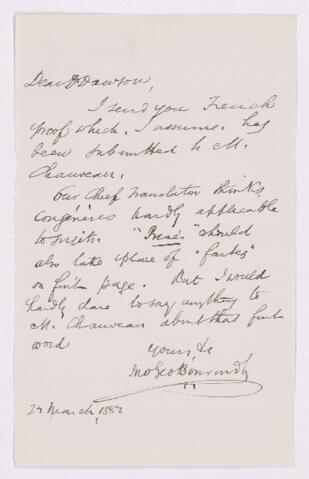 Dear Dr Dawson,
I send you French
proof which, I assume, has
been submitted to M.
Chauveau.
Our Chief Translator thinks
congénères hardly applicable
to should
also take place of
on first page. But I would
hardly dare to say anything to
M. Chauveau about that first
word
Yours, &c
Jno Geo Bourinot
29 March, 1882